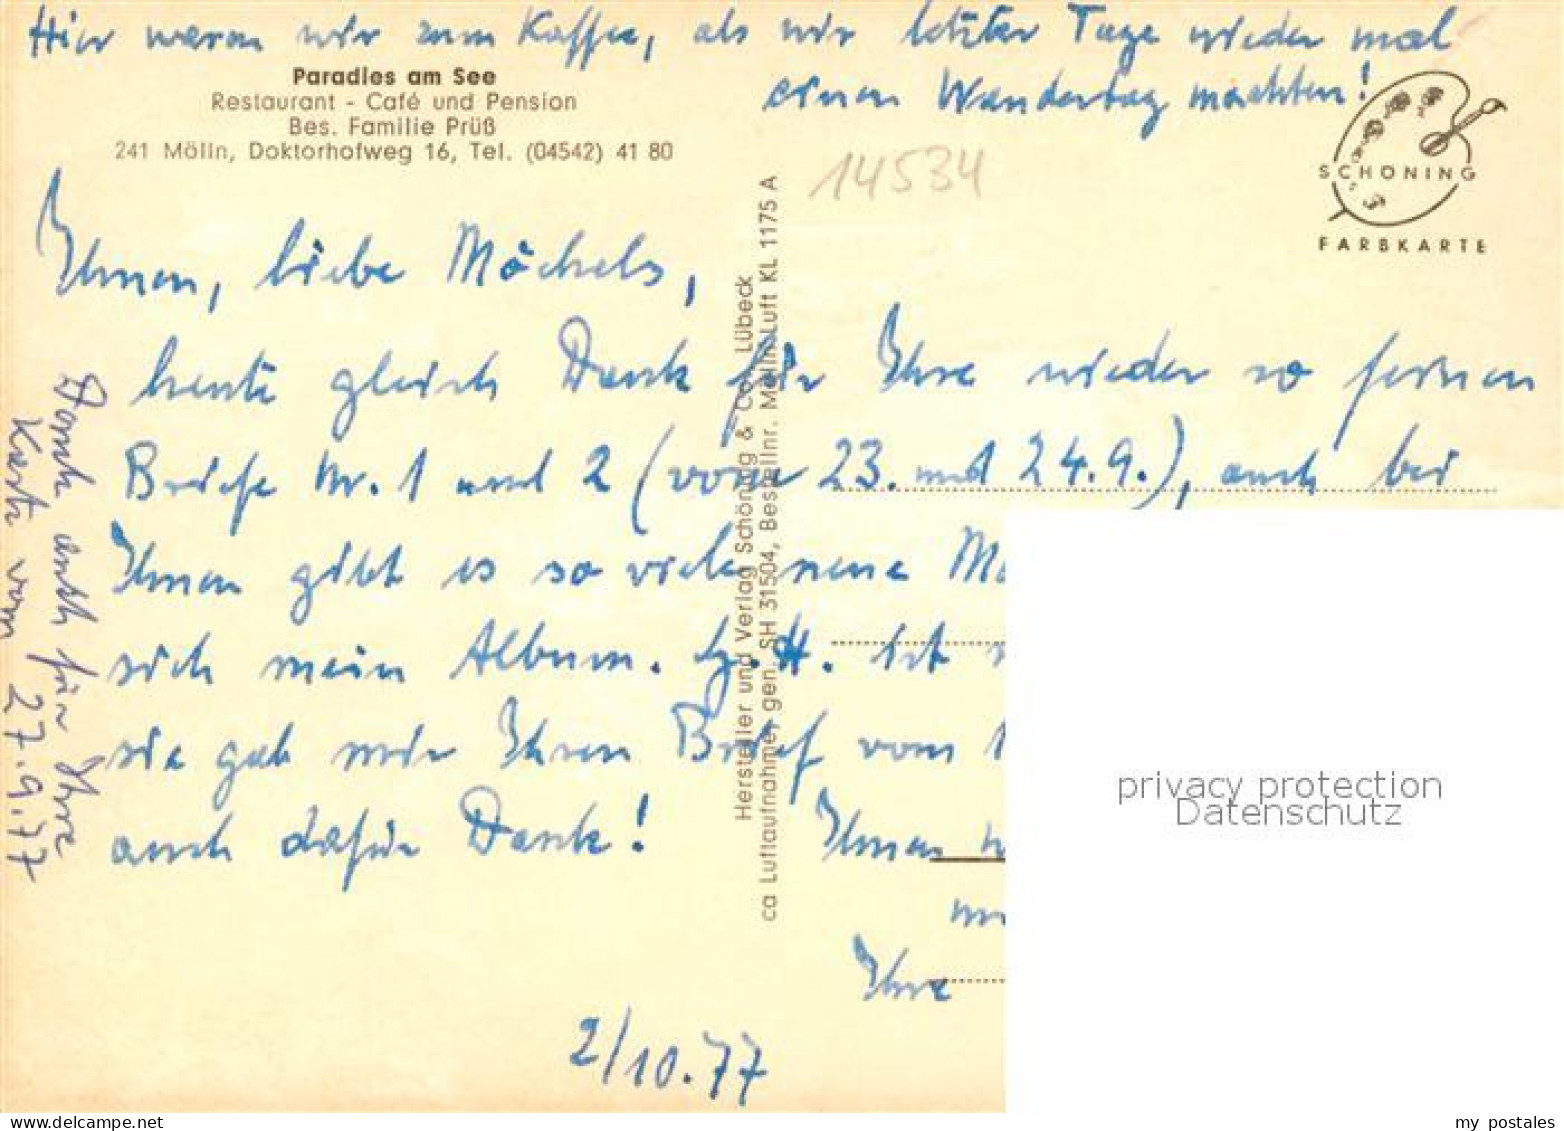 Hier waren wir zum Kaffee, als wir letzter Tage wieder mal
einen Wandertag machten!
Paradies am See
Restaurant - Café und Pension
Bes. Familie Prüß
241 Mölln, Doktorhofweg 16, Tel. (04542) 41 80
14534
SCHÖNING
FARBKARTE
Ihnen, liebe Möchels,
heute gleich Dank für Ihre wieder so
Briefe Nr. 1 und 2 (vom 23. und 24.9.), auch bei
Ihnen gibt es so viele neue
sich mein Album. Ist
sie gab mir Ihren Brief vom
auch dafür Dank! Ihnen
Ihre
2/10.77
Dank auch für Ihre
Karte vom 27.9.77
Hersteller und Verlag Schöning & Co., Lübeck
ca Luftaufnahme, gen. SH 31504, Bestellnr. Mölln Luft KL 1175 A
privacy protection
Datenschutz
www.delcampe.net
my_postales